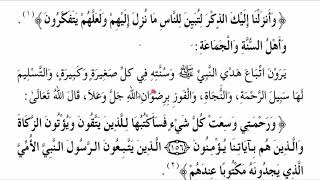 ﴿ وَأَنزَلْنَا إِلَيْكَ الذِّكْرَ لِتُبَيِّنَ لِلنَّاسِ مَا نُزِّلَ إِلَيْهِمْ وَلَعَلَّهُمْ يَتَفَكَّرُونَ ﴾(١).
وَأَهْلُ السُّنَّةِ وَالْجَمَاعَةِ:
يَرَوْنَ اتِّبَاعَ هَدْيِ النَّبِيِّ ﷺ وَسُنَّتِهِ فِي كُلِّ صَغِيرَةٍ وَكَبِيرَةٍ، وَالتَّسْلِيمَ
لَهَا سَبِيلَ الرَّحْمَةِ، وَالنَّجَاةِ، وَالْفَوْزِ بِرِضْوَانِ اللهِ جَلَّ وَعَلَا، قَالَ اللهُ تَعَالَى:
﴿ وَرَحْمَتِي وَسِعَتْ كُلَّ شَيْءٍ فَسَأَكْتُبُهَا لِلَّذِينَ يَتَّقُونَ وَيُؤْتُونَ الزَّكَاةَ
وَالَّذِينَ هُم بِآيَاتِنَا يُؤْمِنُونَ ﴿١٥٦﴾ الَّذِينَ يَتَّبِعُونَ الرَّسُولَ النَّبِيَّ الأُمِّيَّ
الَّذِي يَجِدُونَهُ مَكْتُوبًا عِندَهُمْ ﴾(٢).